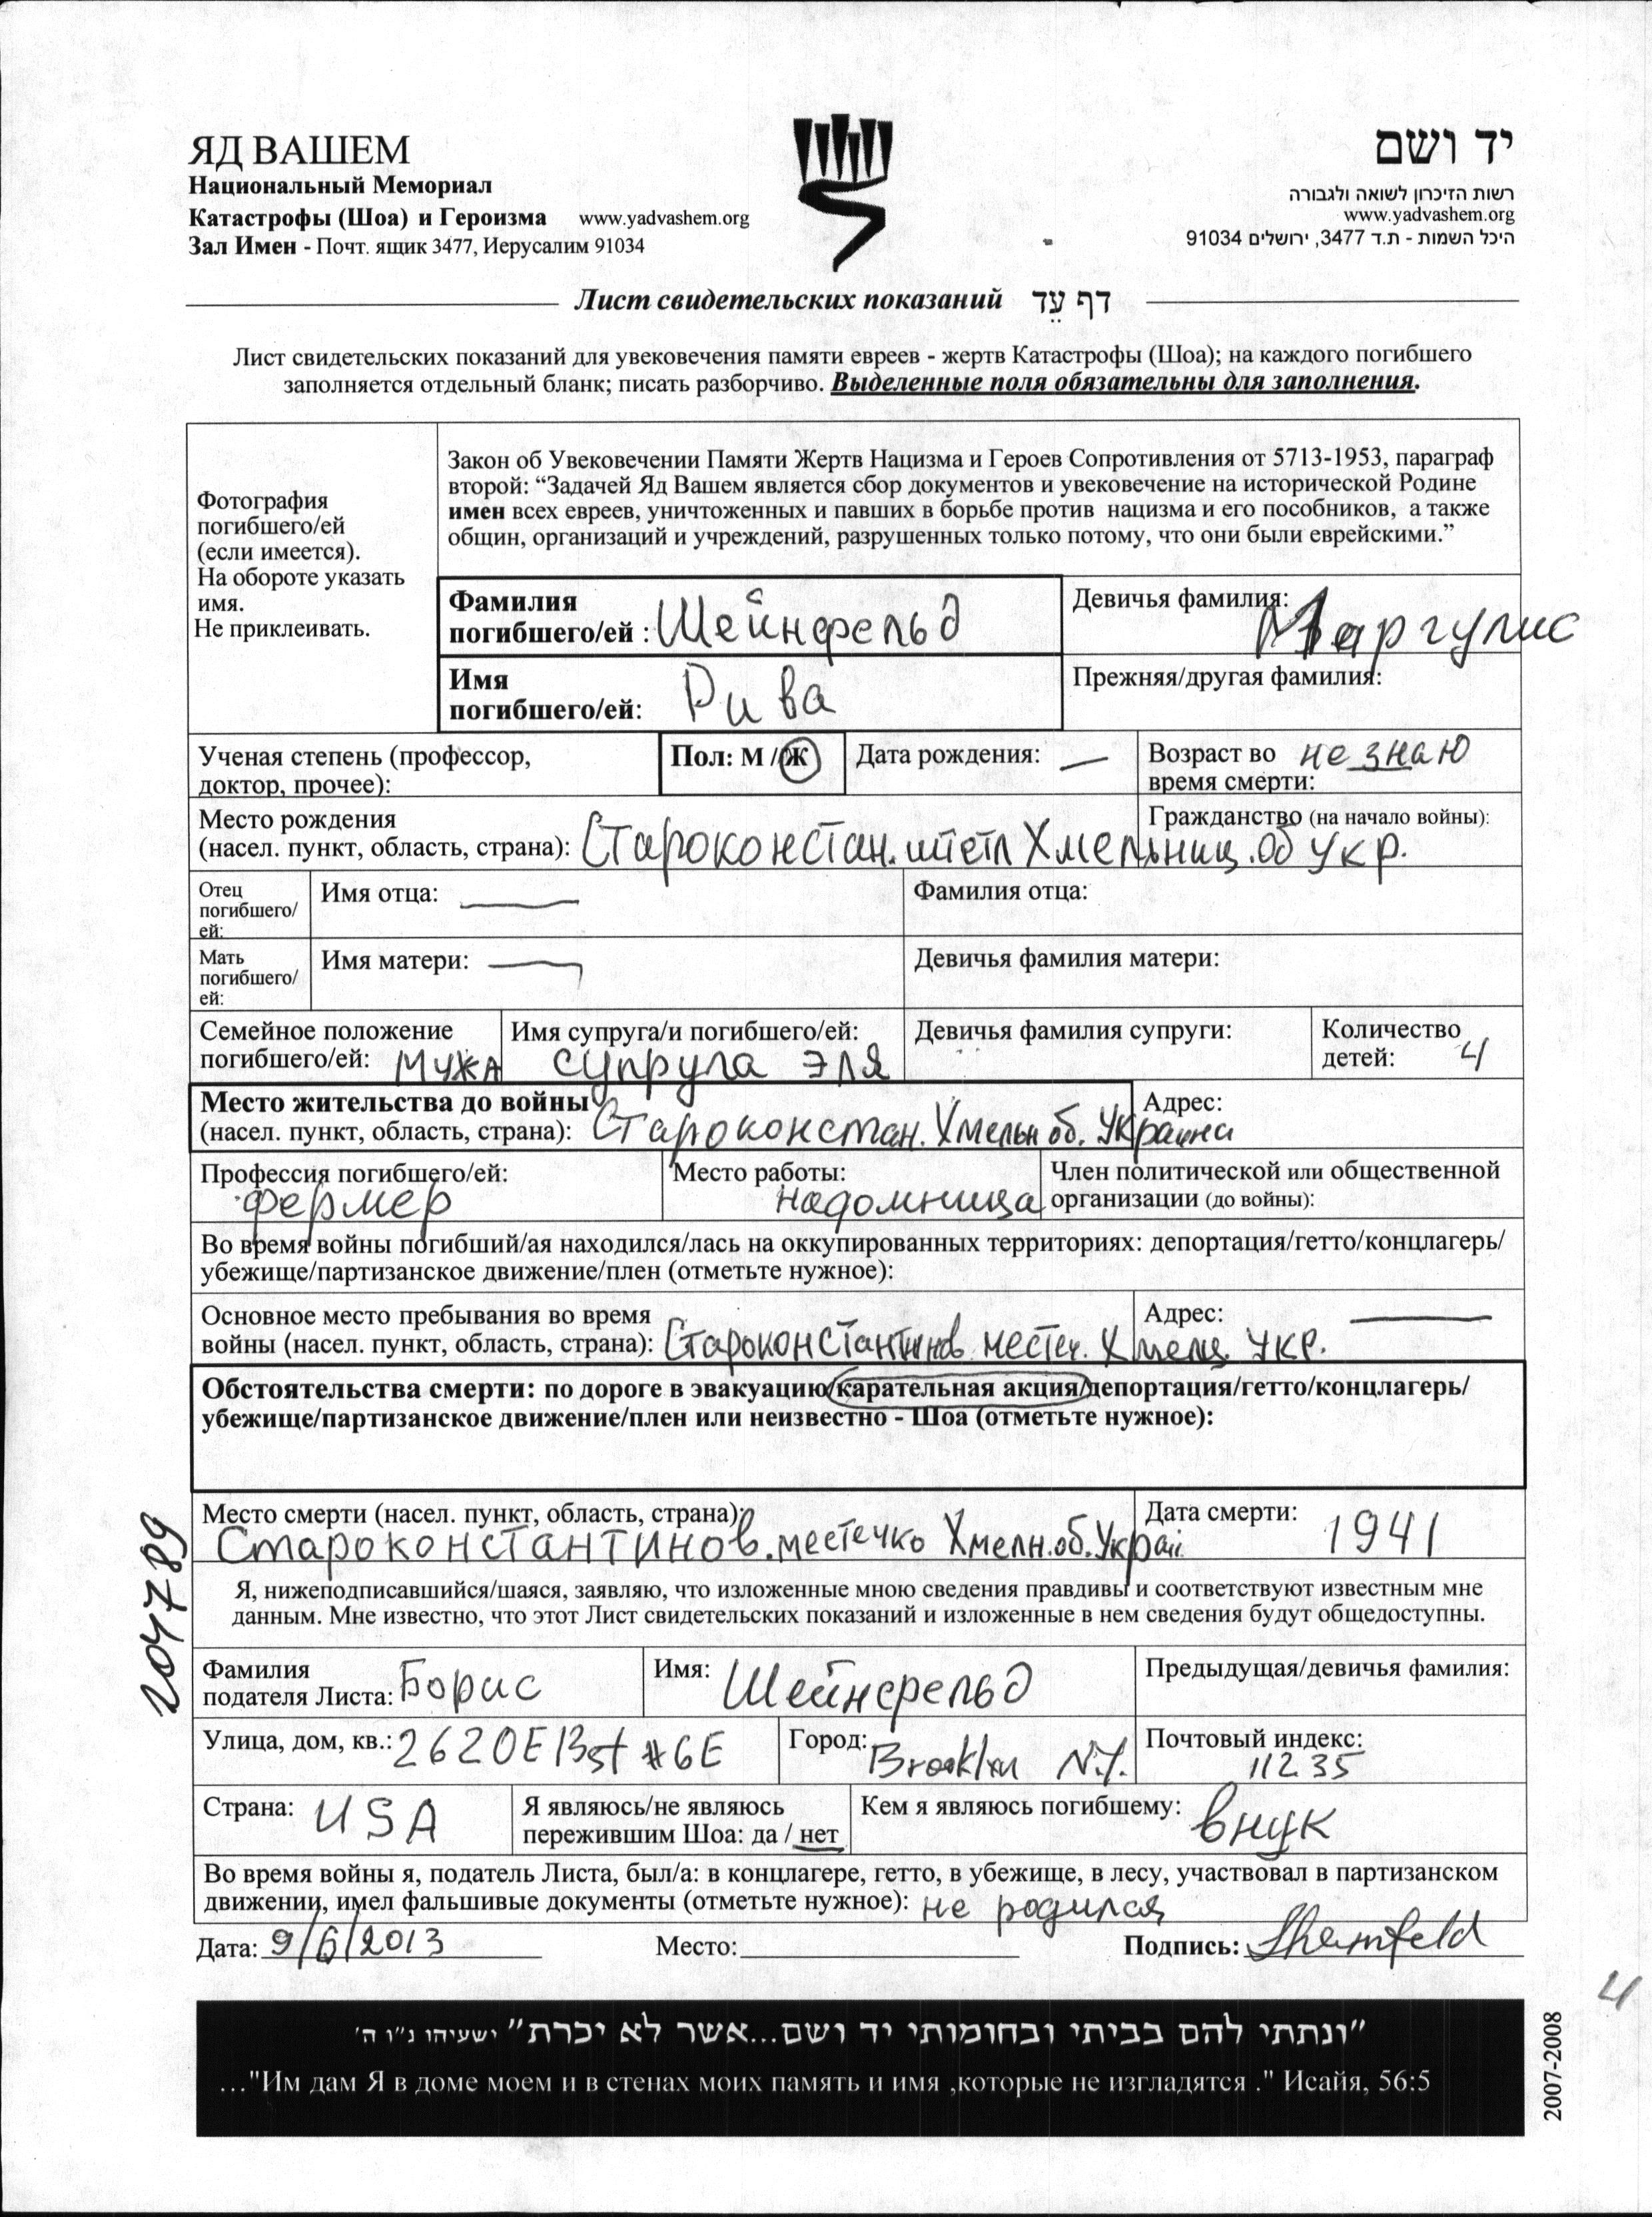 ЯД ВАШЕМ
Национальный Мемориал
Катастрофы (Шоа) и Героизма www.yadvashem.org
Зал Имен - Почт. ящик 3477, Иерусалим 91034
יד ושם
רשות הזיכרון לשואה ולגבורה
www.yadvashem.org
היכל השמות - ת.ד 3477, ירושלים 91034
Лист свидетельских показаний דף עֵד
Лист свидетельских показаний для увековечения памяти евреев - жертв Катастрофы (Шоа); на каждого погибшего
заполняется отдельный бланк; писать разборчиво. Выделенные поля обязательны для заполнения.
Фотография
погибшего/ей
(если имеется).
На обороте указать
имя.
Не приклеивать.
Закон об Увековечении Памяти Жертв Нацизма и Героев Сопротивления от 5713-1953, параграф
второй: “Задачей Яд Вашем является сбор документов и увековечение на исторической Родине
имен всех евреев, уничтоженных и павших в борьбе против нацизма и его пособников, а также
общин, организаций и учреждений, разрушенных только потому, что они были еврейскими.”
Фамилия
погибшего/ей : Шейнфельд
Девичья фамилия: Маргулис
Имя
погибшего/ей: Рива
Прежняя/другая фамилия:
Ученая степень (профессор,
доктор, прочее):
Пол: М / Ж
Дата рождения: —
Возраст во не знаю
время смерти:
Место рождения
(насел. пункт, область, страна): Староконстан. штетл Хмельниц. об Укр.
Гражданство (на начало войны):
Отец
погибшего/
ей:
Имя отца: —
Фамилия отца:
Мать
погибшего/
ей:
Имя матери: —
Девичья фамилия матери:
Семейное положение
погибшего/ей: мужа
Имя супруга/и погибшего/ей:
супруга Эля
Девичья фамилия супруги:
Количество
детей: 4
Место жительства до войны
(насел. пункт, область, страна): Староконстан. Хмельн об. Украина
Адрес:
Профессия погибшего/ей:
фермер
Место работы:
надомница
Член политической или общественной
организации (до войны):
Во время войны погибший/ая находился/лась на оккупированных территориях: депортация/гетто/концлагерь/
убежище/партизанское движение/плен (отметьте нужное):
Основное место пребывания во время
войны (насел. пункт, область, страна): Староконстантинов местеч. Укр.
Адрес: —
Обстоятельства смерти: по дороге в эвакуацию/карательная акция/депортация/гетто/концлагерь/
убежище/партизанское движение/плен или неизвестно - Шоа (отметьте нужное):
Место смерти (насел. пункт, область, страна):
Староконстантинов. местечко Хмелн. об. Украи
Дата смерти: 1941
Я, нижеподписавшийся/шаяся, заявляю, что изложенные мною сведения правдивы и соответствуют известным мне
данным. Мне известно, что этот Лист свидетельских показаний и изложенные в нем сведения будут общедоступны.
204789
Фамилия
подателя Листа: Борис
Имя: Шейнфельд
Предыдущая/девичья фамилия:
Улица, дом, кв.: 2620 E 13st #6E
Город: Brooklyn N.Y.
Почтовый индекс:
11235
Страна: USA
Я являюсь/не являюсь
пережившим Шоа: да / нет
Кем я являюсь погибшему: внук
Во время войны я, податель Листа, был/а: в концлагере, гетто, в убежище, в лесу, участвовал в партизанском
движении, имел фальшивые документы (отметьте нужное): не родился
Дата: 9/6/2013 Место: Подпись: Sheinfeld
4
"ונתתי להם בביתי ובחומותי יד ושם...אשר לא יכרת" ישעיהו נ"ו ה'
..."Им дам Я в доме моем и в стенах моих память и имя ,которые не изгладятся ." Исайя, 56:5
2007-2008